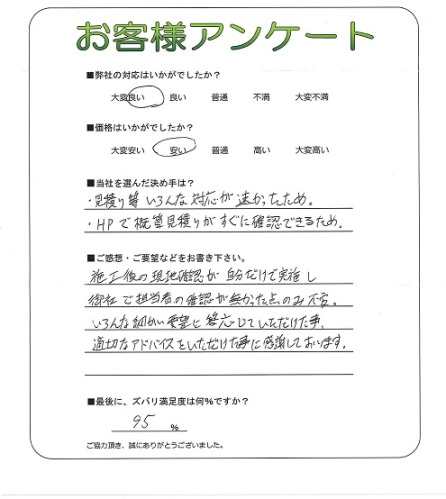 お客様アンケート
■弊社の対応はいかがでしたか?
大変良い 良い 普通 不満 大変不満
■価格はいかがでしたか?
大変安い 安い 普通 高い 大変高い
■当社を選んだ決め手は?
・見積り等 いろんな対応が速かったため。
・HPで概算見積りがすぐに確認できるため。
■ご感想・ご要望などをお書き下さい。
施工後の現地確認が自分だけで実施し
御社で担当者の確認が無かった点のみ不安。
いろんな細かい要望に答応じていただけた事、
適切なアドバイスをいただけた事に感謝しております。
■最後に、ズバリ満足度は何%ですか?
95 %
ご協力頂き、誠にありがとうございました。